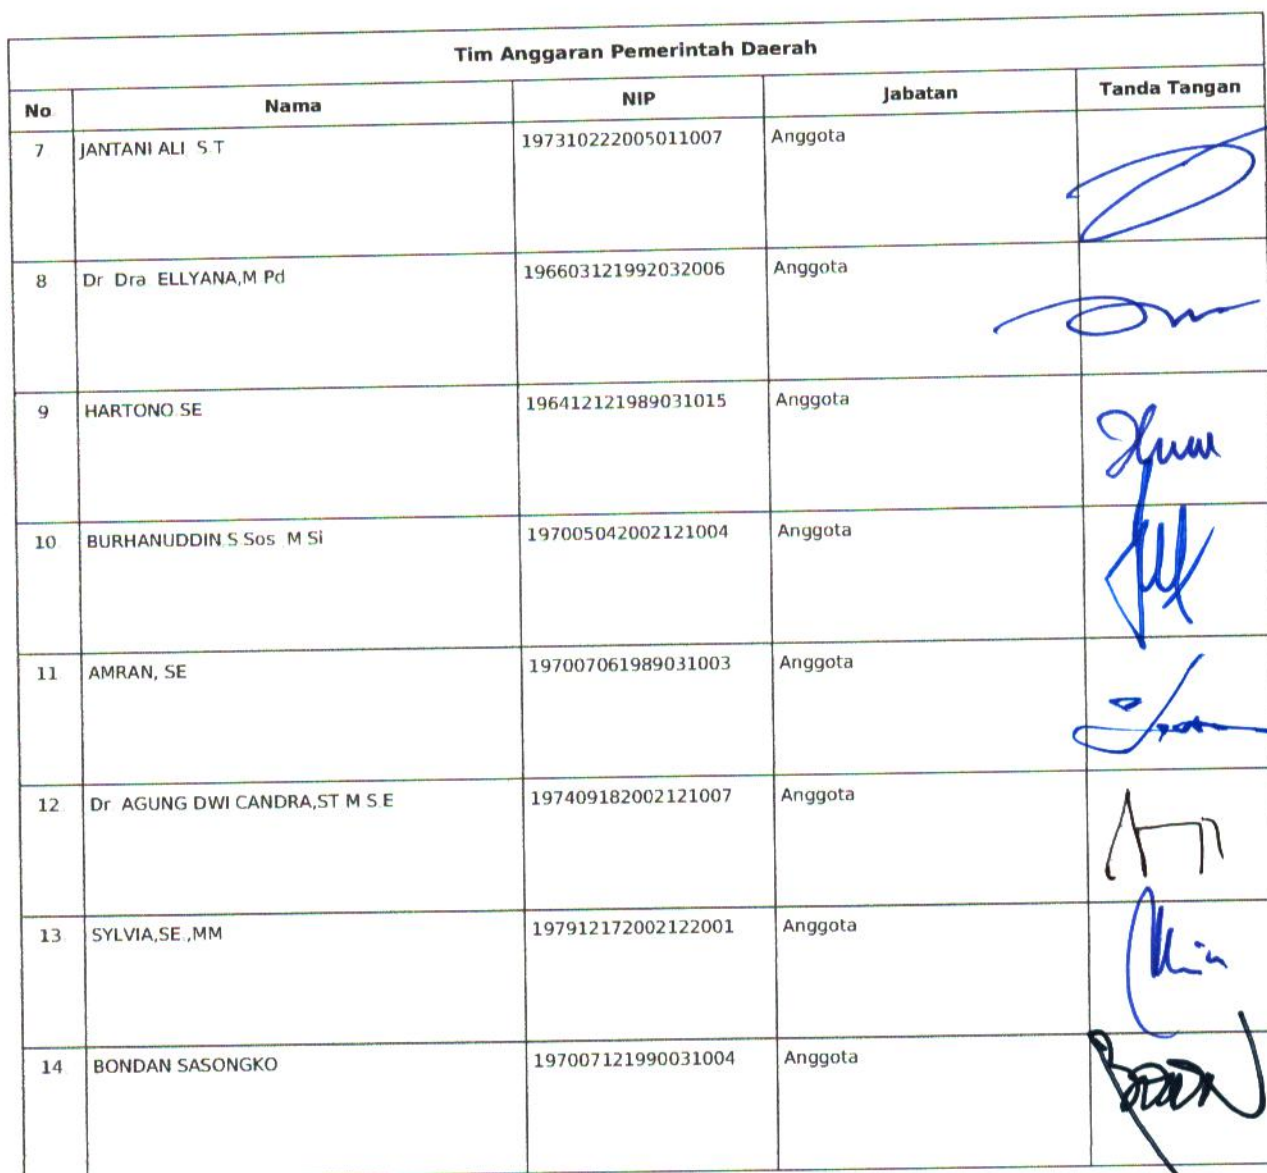 Tim Anggaran Pemerintah Daerah
No Nama NIP Jabatan Tanda Tangan
7 JANTANI ALI S T 197310222005011007 Anggota
8 Dr Dra ELLYANA,M Pd 196603121992032006 Anggota
9 HARTONO SE 196412121989031015 Anggota
10 BURHANUDDIN S Sos M Si 197005042002121004 Anggota
11 AMRAN, SE 197007061989031003 Anggota
12 Dr AGUNG DWI CANDRA,ST M S E 197409182002121007 Anggota
13 SYLVIA,SE.,MM 197912172002122001 Anggota
14 BONDAN SASONGKO 197007121990031004 Anggota